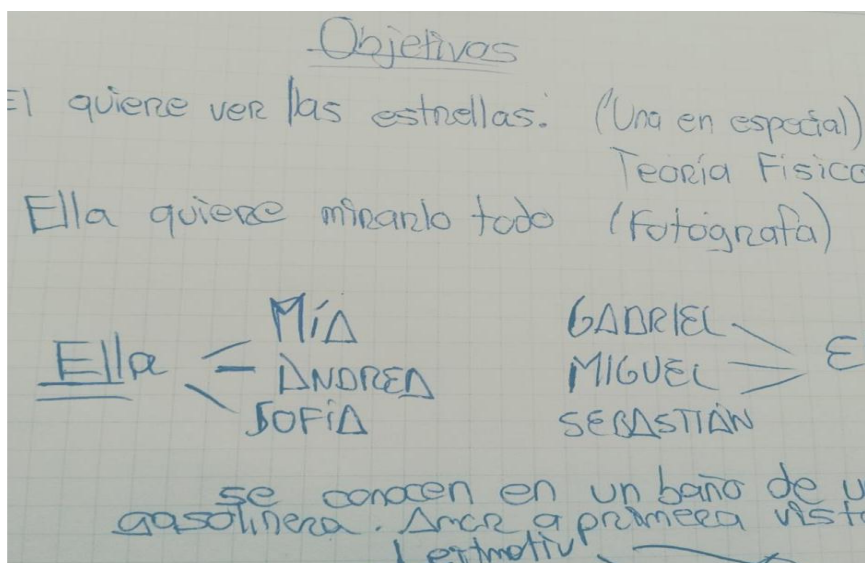 Objetivos
El quiere ver las estrellas. (Una en especial)
Teoría Física
Ella quiere mirarlo todo (Fotógrafa)
MÍA GABRIEL
Ella ANDREA MIGUEL E
SOFÍA SEBASTIÁN
se conocen en un baño de u
gasolinera. Amor a primera vista
Leitmotiv